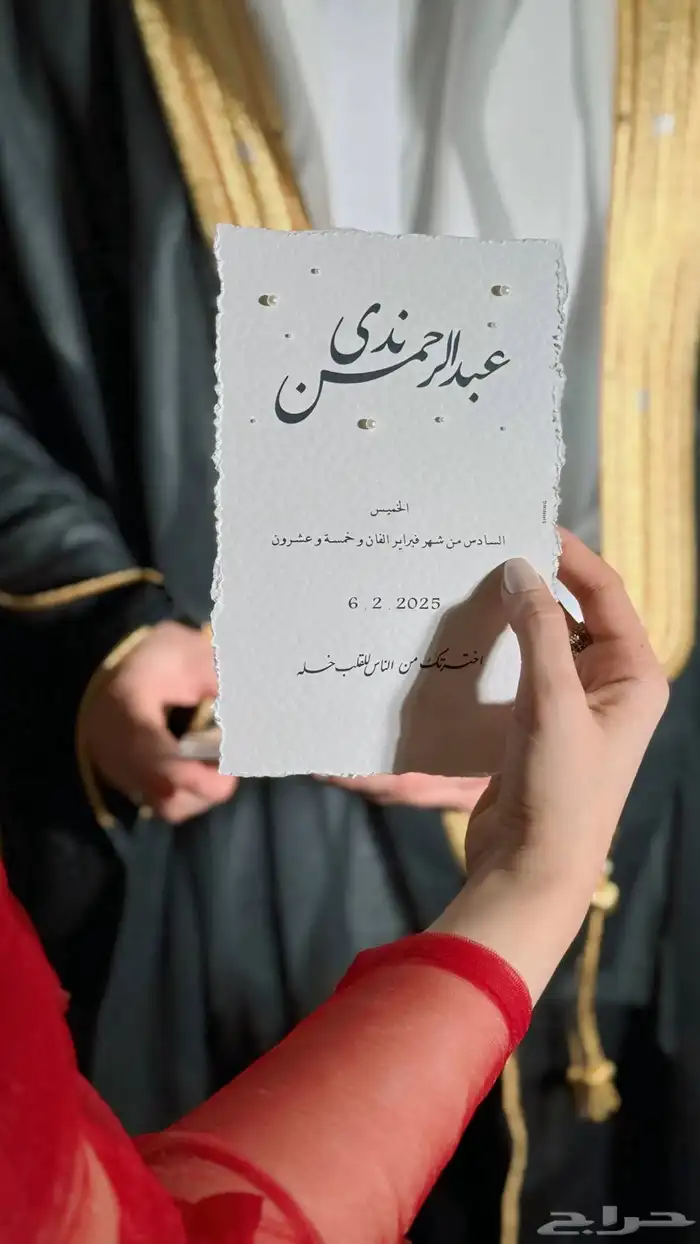 عبدالرحمن ندى
الخميس
السادس من شهر فبراير الفان و خمسة و عشرون
6 . 2 . 2025
اخترتك من الناس للقلب خله
حراج